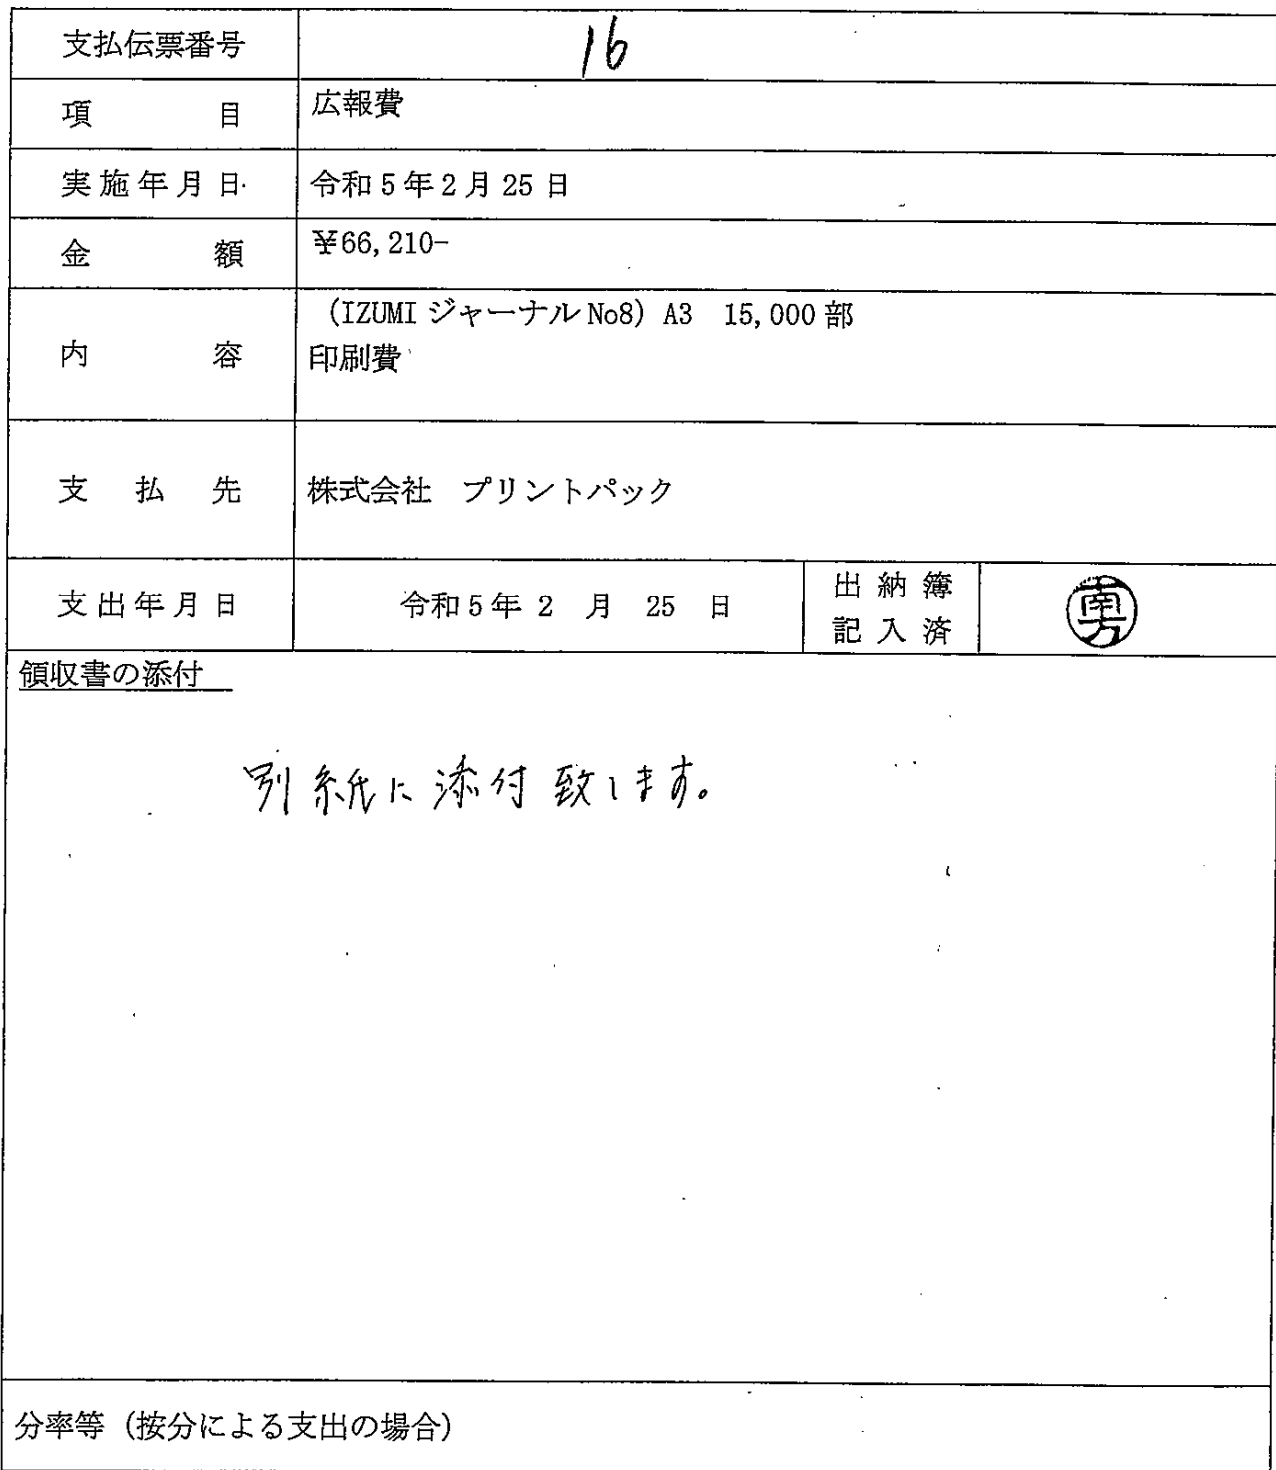 支払伝票番号 16
項目 広報費
実施年月日 令和5年2月25日
金額 ¥66,210-
(IZUMI ジャーナル No8) A3 15,000 部
内容 印刷費
支払先 株式会社 プリントパック
支出年月日 令和5年 2 月 25 日 出納簿
記入済
領収書の添付
別紙に添付致します。
分率等(按分による支出の場合)